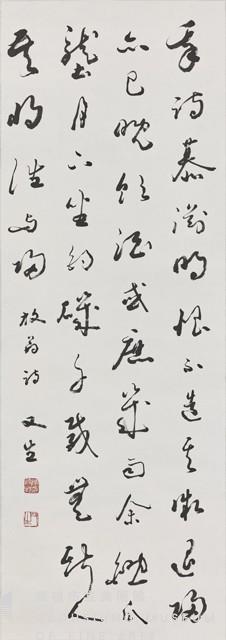 我詩慕淵明恨不造其微退歸
亦已晚飲酒或庶幾雨余鋤瓜
壟月下坐釣磯千載無斯人
吾將誰與歸
放翁詩
MUSEUM
OF FINE ARTS